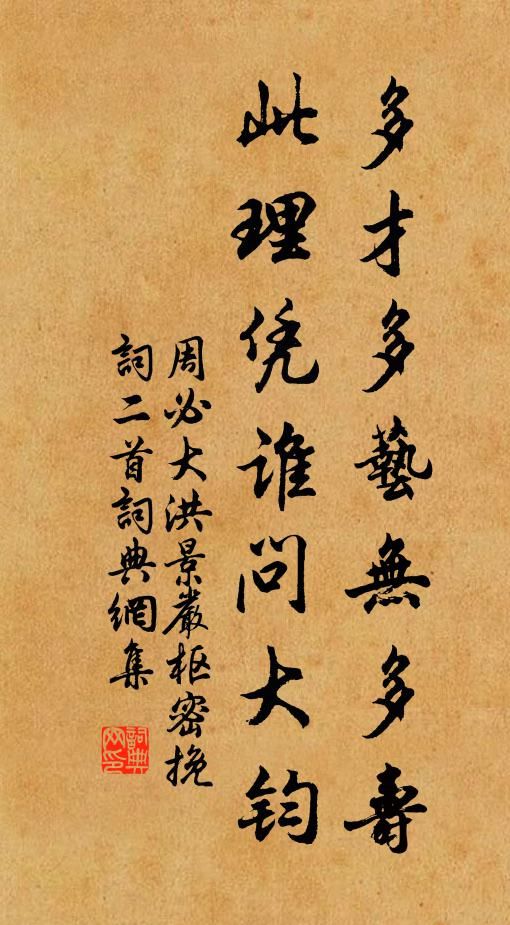 多才多藝無多壽
此理凭誰問大鈞
周必大洪景嚴枢密挽
詞二首詞典網集
詞典网印